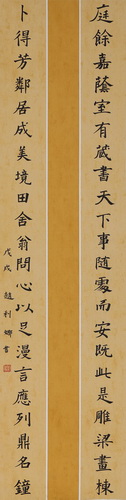 庭餘嘉蔭室有藏書天下事隨處而安旣此是雕梁畫棟
卜得芳鄰居成美境田舍翁問心以足漫言應列鼎名鐘
戊戌 趙利娜書